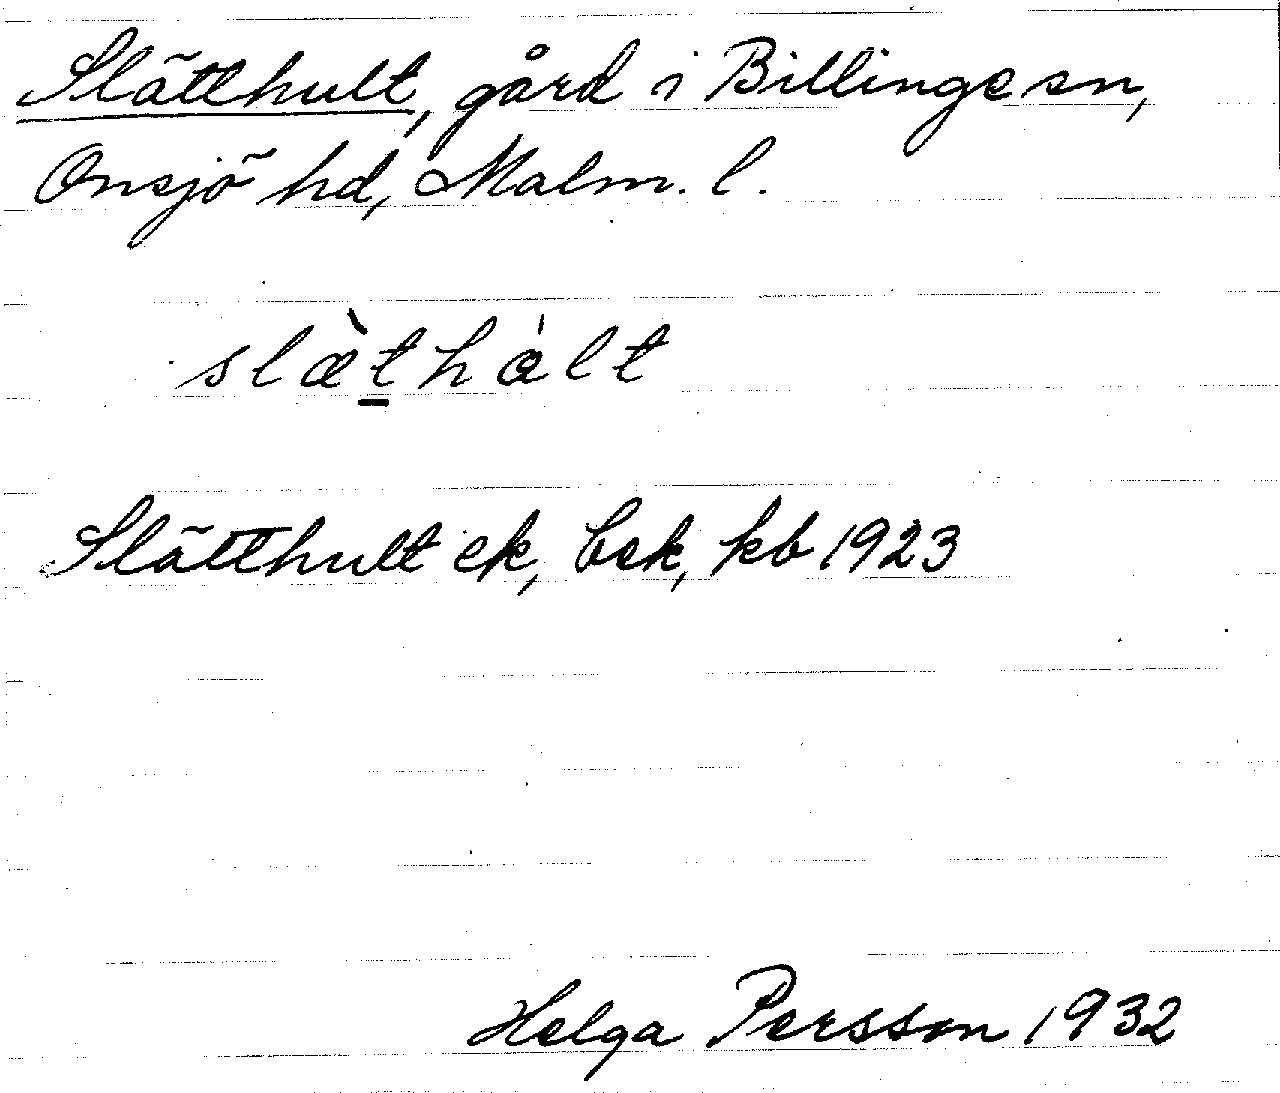 Slätthult, gård i Billinge sn,
Onsjö hd, Malm. l.
slæ̀t̲hα̍lt
Slätthult ek, bek, kb 1923
Helga Persson 1932